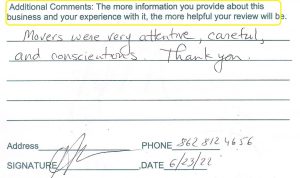 Additional Comments: The more information you provide about this
business and your experience with it, the more helpful your review will be.
Movers were very attentive, careful,
and conscientious. Thank you.
Address PHONE 862 812 4656
SIGNATURE ,DATE 6/23/22